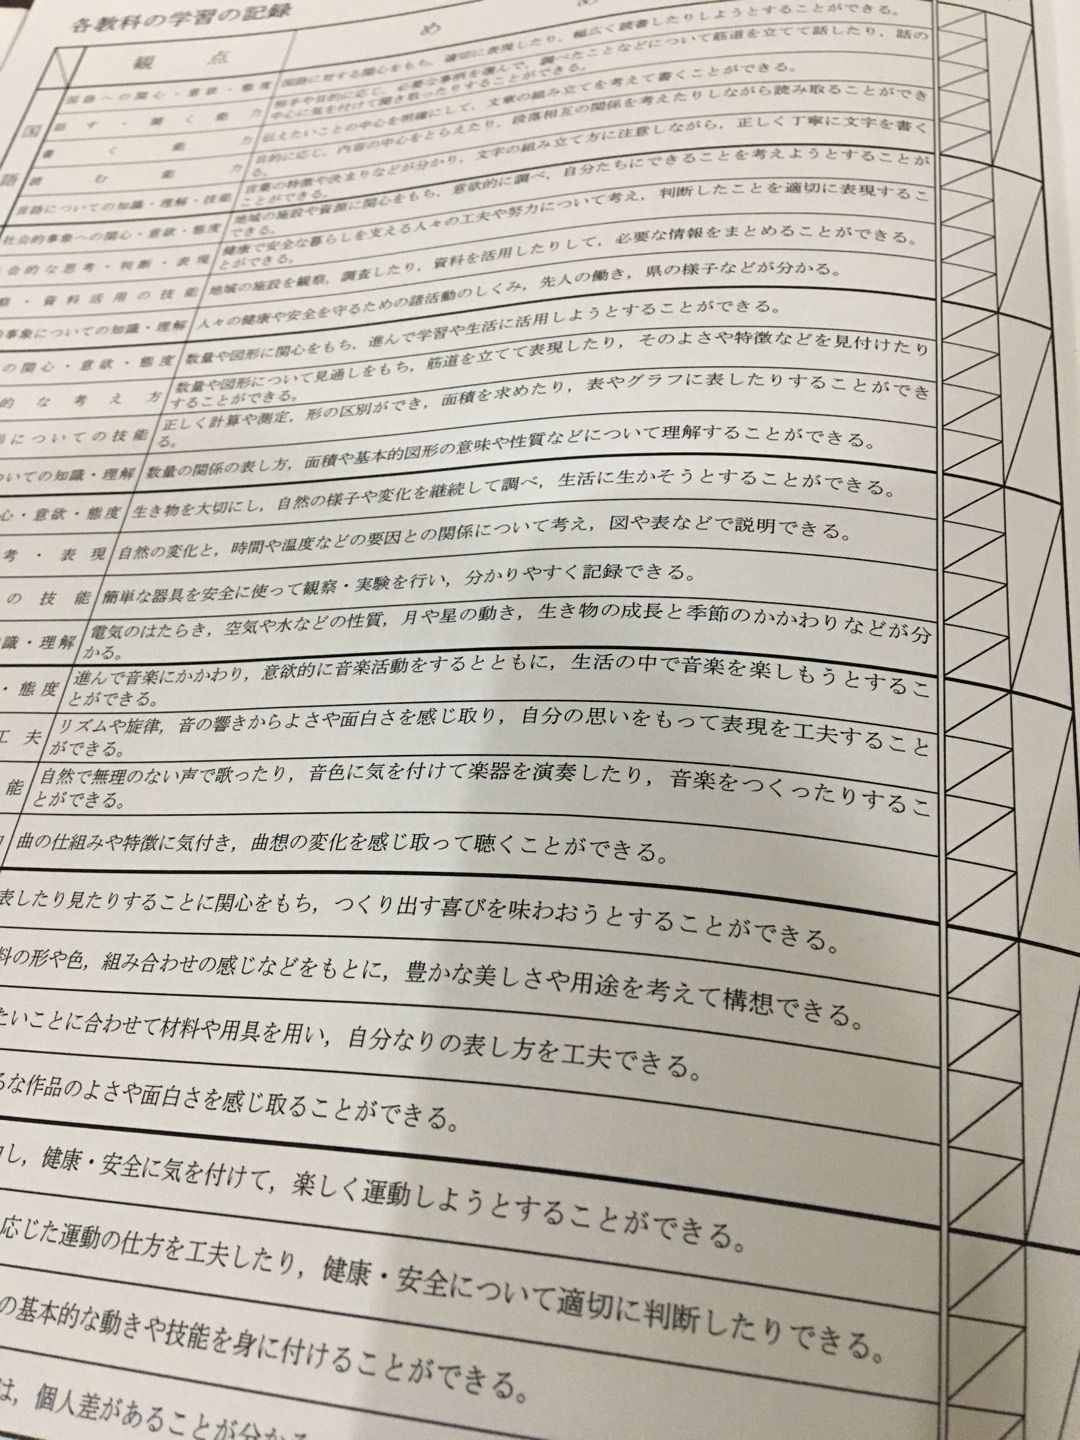 各教科の学習の記録
観 点 め あ
国語への関心・意欲・態度 国語に対する関心をもち，適切に表現したり，幅広く読書したりしようとすることができる。
話す・聞く能力 相手や目的に応じ，必要な事柄を選んで，調べたことなどについて筋道を立てて話したり，話の
中心に気を付けて聞き取ったりすることができる。
国 書く能力 伝えたいことの中心を明確にして，文章の組み立てを考えて書くことができる。
語 読む能力 目的に応じ，内容の中心をとらえたり，段落相互の関係を考えたりしながら読み取ることができ
る。
言語についての知識・理解・技能 言葉の特徴や決まりなどが分かり，文字の組み立て方に注意しながら，正しく丁寧に文字を書く
ことができる。
社会的事象への関心・意欲・態度 地域の施設や資源に関心をもち，意欲的に調べ，自分たちにできることを考えようとすることが
できる。
会的な思考・判断・表現 健康で安全な暮らしを支える人々の工夫や努力について考え，判断したことを適切に表現するこ
とができる。
察・資料活用の技能 地域の施設を観察，調査したり，資料を活用したりして，必要な情報をまとめることができる。
事象についての知識・理解 人々の健康や安全を守るための諸活動のしくみ，先人の働き，県の様子などが分かる。
の関心・意欲・態度 数量や図形に関心をもち，進んで学習や生活に活用しようとすることができる。
的な考え方 数量や図形について見通しをもち，筋道を立てて表現したり，そのよさや特徴などを見付けたり
することができる。
形についての技能 正しく計算や測定，形の区別ができ，面積を求めたり，表やグラフに表したりすることができ
る。
ついての知識・理解 数量の関係の表し方，面積や基本的図形の意味や性質などについて理解することができる。
心・意欲・態度 生き物を大切にし，自然の様子や変化を継続して調べ，生活に生かそうとすることができる。
考・表現 自然の変化と，時間や温度などの要因との関係について考え，図や表などで説明できる。
の技能 簡単な器具を安全に使って観察・実験を行い，分かりやすく記録できる。
識・理解 電気のはたらき，空気や水などの性質，月や星の動き，生き物の成長と季節のかかわりなどが分
かる。
・態度 進んで音楽にかかわり，意欲的に音楽活動をするとともに，生活の中で音楽を楽しもうとするこ
とができる。
工夫 リズムや旋律，音の響きからよさや面白さを感じ取り，自分の思いをもって表現を工夫すること
ができる。
能 自然で無理のない声で歌ったり，音色に気を付けて楽器を演奏したり，音楽をつくったりするこ
とができる。
曲の仕組みや特徴に気付き，曲想の変化を感じ取って聴くことができる。
表したり見たりすることに関心をもち，つくり出す喜びを味わおうとすることができる。
料の形や色，組み合わせの感じなどをもとに，豊かな美しさや用途を考えて構想できる。
たいことに合わせて材料や用具を用い，自分なりの表し方を工夫できる。
るな作品のよさや面白さを感じ取ることができる。
し，健康・安全に気を付けて，楽しく運動しようとすることができる。
応じた運動の仕方を工夫したり，健康・安全について適切に判断したりできる。
の基本的な動きや技能を身に付けることができる。
は，個人差があることが分かる